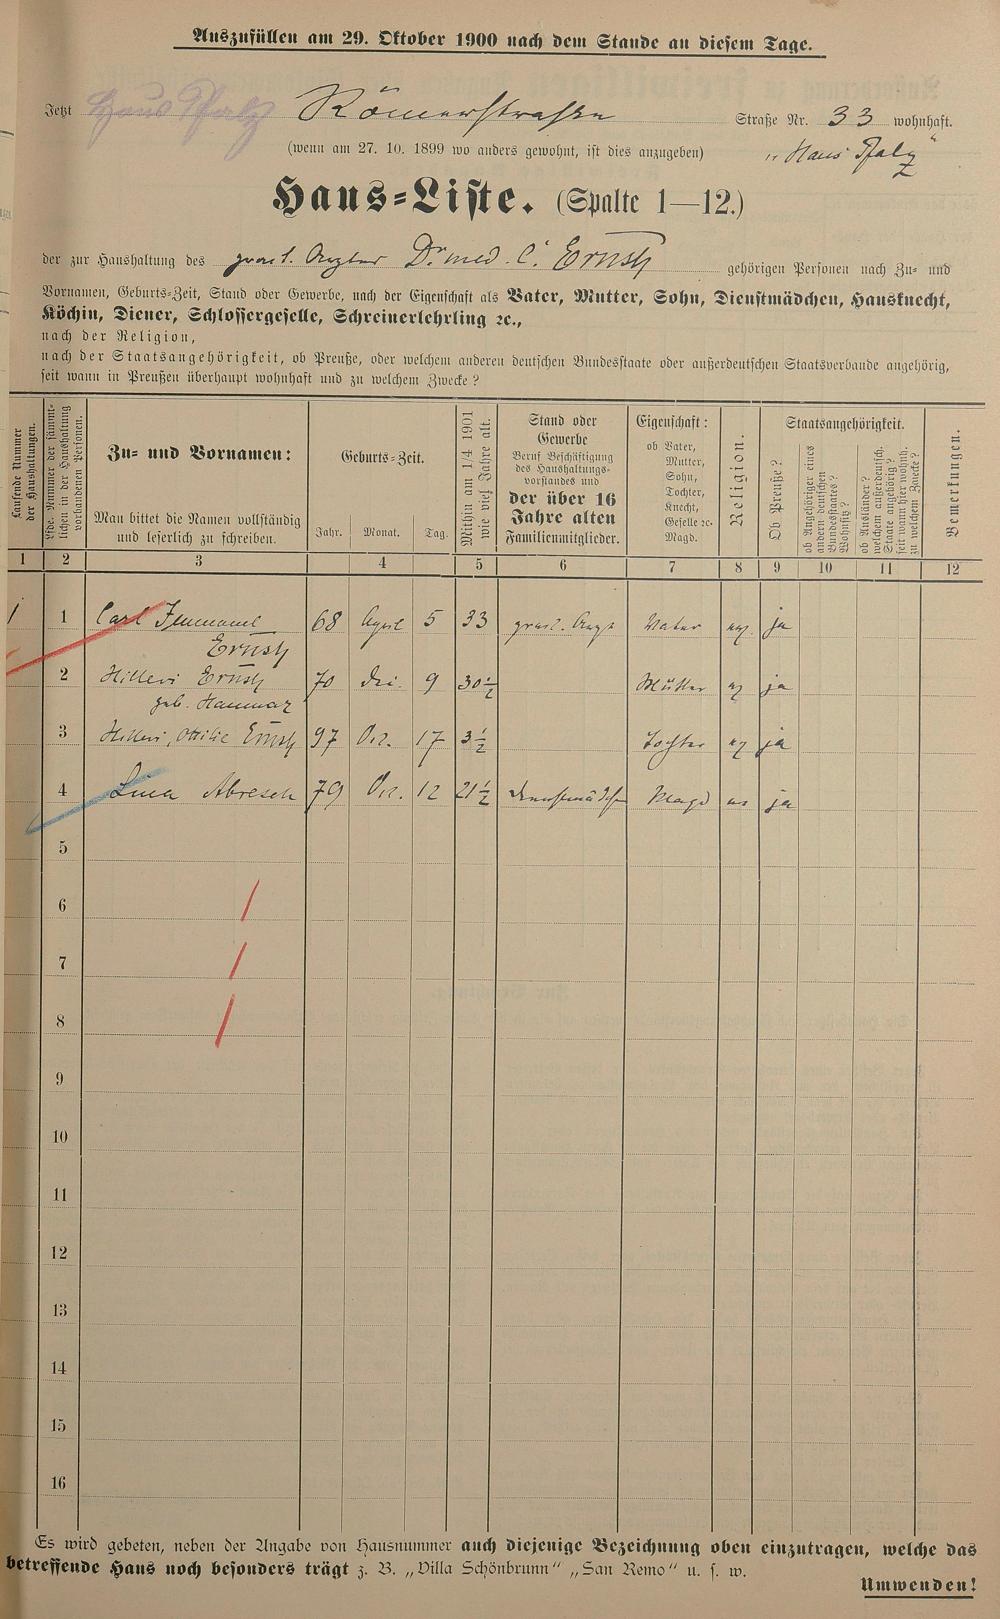 Auszufüllen am 29. Oktober 1900 nach dem Stande an diesem Tage.
Jetzt Haus Pfalz Römerstraße Straße Nr. 33 wohnhaft.
(wenn am 27. 10. 1899 wo anders gewohnt, ist dies anzugeben) „Haus Pfalz“
Haus-Liste. (Spalte 1—12.)
der zur Haushaltung des pract. Arztes Dr med. C. Ernst gehörigen Personen nach Zu- und
Vornamen, Geburts-Zeit, Stand oder Gewerbe, nach der Eigenschaft als Vater, Mutter, Sohn, Dienstmädchen, Hausknecht,
Köchin, Diener, Schlossergeselle, Schreinerlehrling ꝛc.,
nach der Religion,
nach der Staatsangehörigkeit, ob Preuße, oder welchem anderen deutschen Bundesstaate oder außerdeutschen Staatsverbande angehörig,
seit wann in Preußen überhaupt wohnhaft und zu welchem Zwecke?
Laufende Nummer
der Haushaltungen.
Lfde. Nummer der sämmt-
lichen in der Haushaltung
vorhandenen Personen.
Zu- und Vornamen:
Man bittet die Namen vollständig
und leserlich zu schreiben.
Geburts-Zeit.
Jahr. Monat. Tag.
Mithin am 1/4 1901
wie viel Jahre alt.
Stand oder
Gewerbe
Beruf Beschäftigung
des Haushaltungs-
vorstandes und
der über 16
Jahre alten
Familienmitglieder.
Eigenschaft:
ob Vater,
Mutter,
Sohn,
Tochter,
Knecht,
Geselle ꝛc.
Magd.
Religion.
Staatsangehörigkeit.
Ob Preuße?
ob Angehöriger eines
andern deutschen
Bundesstaates?
Wohnsitz?
ob Ausländer?
welchem außerdeutsch.
Staate angehörig?
seit wann hier wohnh.
zu welchem Zwecke?
Bemerkungen.
1 2 3 4 5 6 7 8 9 10 11 12
1 1 Carl Immanuel 68 April 5 33 pract. Arzt Vater ev. ja
Ernst
2 Hilleri Ernst 70 9 30½ Mutter ev ja
geb. Hammar
3 Hilleri, Ottilie Ernst 97 Oct. 17 3½ Tochter ev ja
4 Lina Abresch 79 Oct. 12 21½ Dienstmädchen Magd ev ja
5
6
7
8
9
10
11
12
13
14
15
16
Es wird gebeten, neben der Angabe von Hausnummer auch diejenige Bezeichnung oben einzutragen, welche das
betreffende Haus noch besonders trägt z. B. „Villa Schönbrunn“ „San Remo“ u. s. w.
Umwenden!